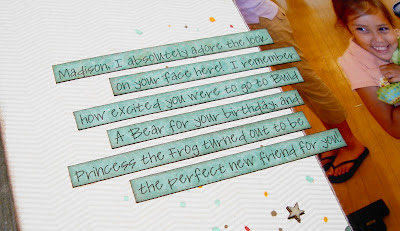 Madison, I absolutely adore the look
on your face here! I remember
how excited you were to go to Build
A Bear for your birthday, and
Princess the Frog turned out to be
the perfect new friend for you